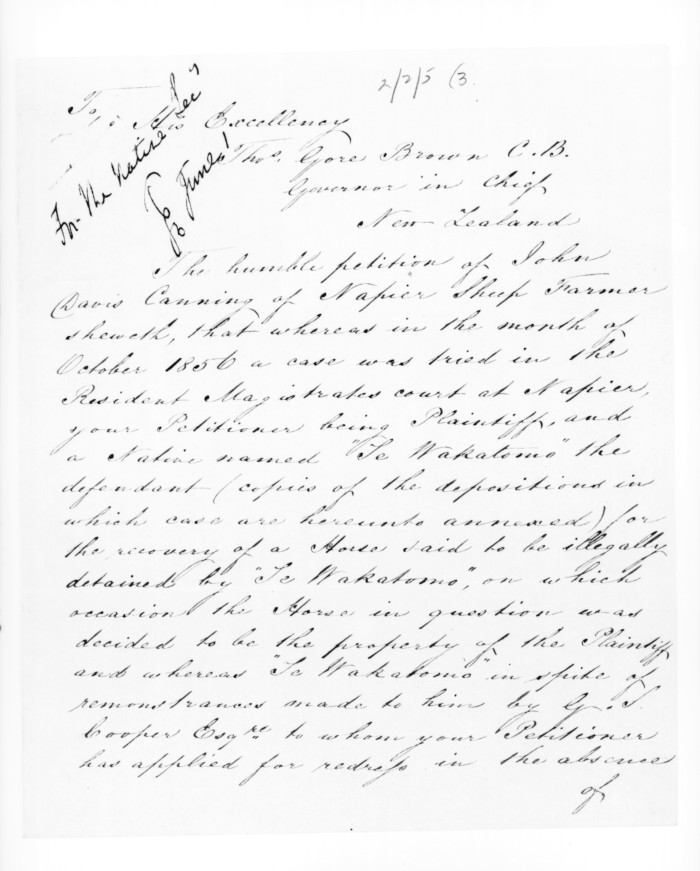 2/2/5 (3.
For the Native Sec^y
June 1
To, His Excellency
Tho^s. Gore Brown C.B.
Governor in Chief
New Zealand
The humble petition of John
Davis Canning of Napier Sheep Farmer
sheweth, that whereas in the month of
October 1856 a case was tried in the
Resident Magistrates court at Napier,
your Petitioner being Plaintiff, and
a Native named "Te Wakatomo" the
defendant (copies of the depositions in
which case are hereunto annexed) for
the recovery of a Horse said to be illegally
detained by "Te Wakatomo", on which
occasion the Horse in question was
decided to be the property of the Plaintiff
and whereas "Te Wakatomo" in spite of
remonstrances made to him by G. S.
Cooper Esq^re. to whom your Petitioner
has applied for redress in the absence
of